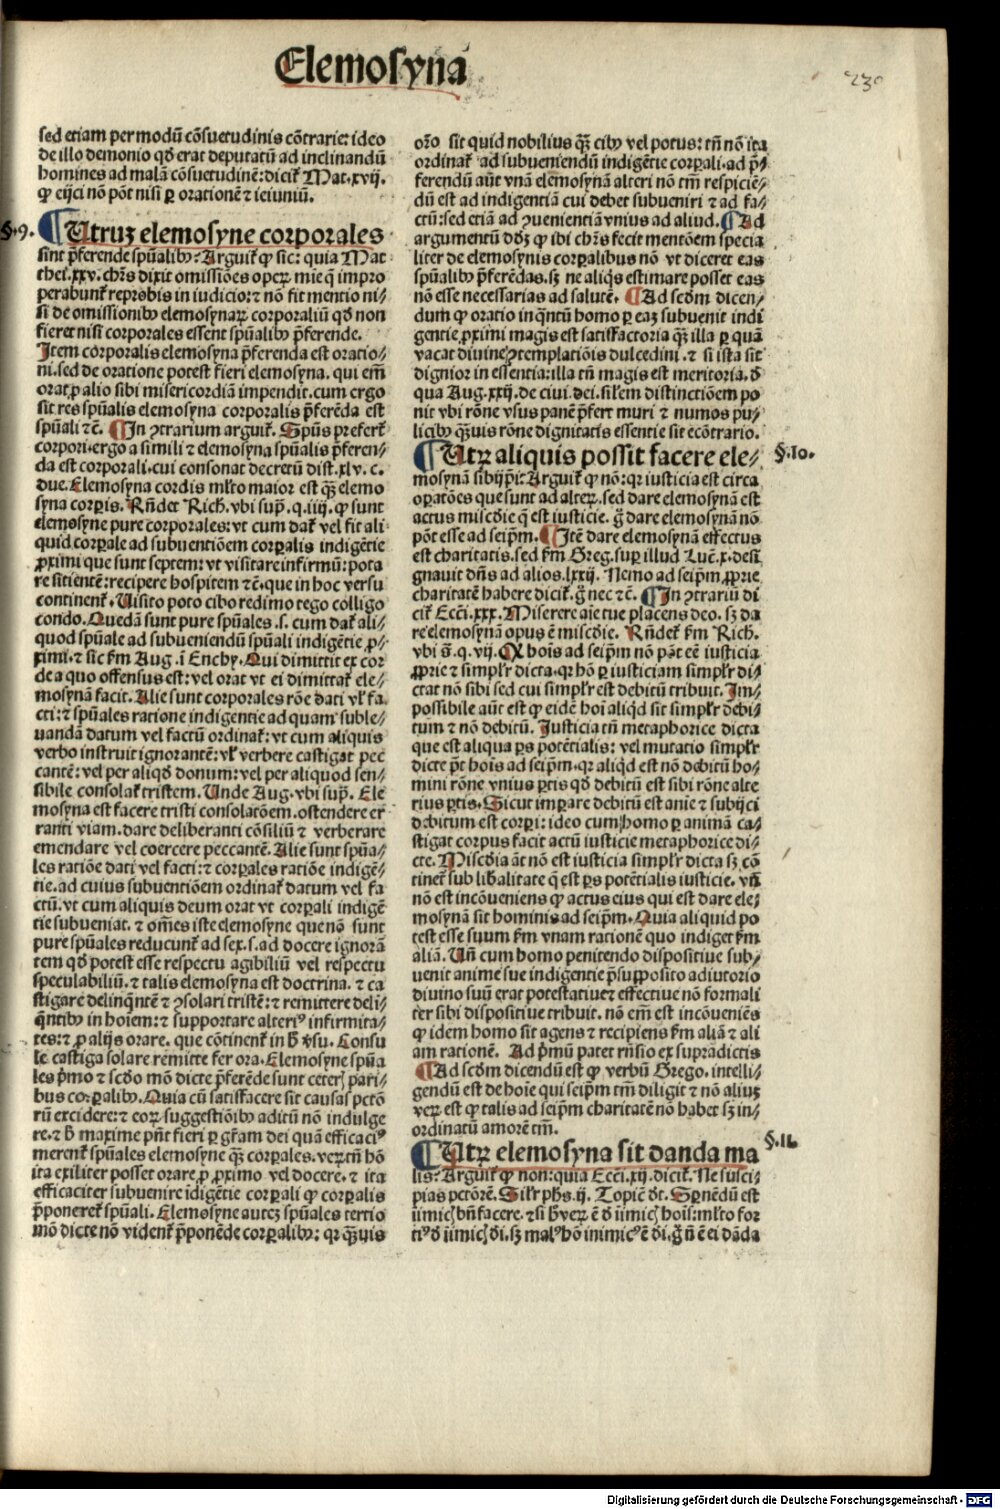 Elemosyna
230
sed etiam per modū cōsuetudinis cōtrarie: ideo
de illo demonio qđ erat deputatū ad inclinandū
homines ad malā cōsuetudinē: dicit̄ Mat. xvij.
ꝙ eijci nō pōt nisi ꝑ orationē ⁊ ieiuniū.
§.9.
¶ Utruꝫ elemosyne corporales
sint p̄ferende spūalibꝰ? Arguit̄ ꝙ sic: quia Mat
thei.xxv. chr̄s dixit omissiōes opeꝝ mīe q̄ impro
perabunt̄ reprobis in iudicio: ⁊ nō fit mentio ni/
si de omissionibꝰ elemosynaꝝ corporaliū qđ non
fieret nisi corporales essent spūalibꝰ p̄ferende.
Item corporalis elemosyna p̄ferenda est oratio/
ni. sed de oratione potest fieri elemosyna. qui em̄
orat ꝓ alio sibi misericordiā impendit. cum ergo
sit res spūalis elemosyna corporalis p̄ferēda est
spūali ⁊c̄. ¶ In ꝯtrarium arguit̄. Spūs prefert̄
corpori. ergo a simili ⁊ elemosyna spūalis p̄feren/
da est corporali. cui consonat decretū dist. xlv. c.
due. Elemosyna cordis ml̄to maior est qꝫ̄ elemo
syna corꝑis. Rn̄det Rich. vbi sup̄. q. iiij. ꝙ sunt
elemosyne pure corporales: vt cum dat̄ vel fit ali
quid corꝑale ad subuentiōem corꝑalis indigētie
ꝓximi que sunt septem: vt visitare infirmū: pota
re sitientē: recipere hospitem ⁊c̄. que in hoc versu
continent̄. Uisito poto cibo redimo tego colligo
condo. Quedā sunt pure spūales .s. cum dat̄ ali/
quod spūale ad subueniendū spūali indigētie ꝓ/
ximi. ⁊ sic fm̄ Aug. ī Enchy. Qui dimittit ex cor
de a quo offensus est: vel orat vt ei dimittat̄ ele/
mosynā facit. Alie sunt corporales rōe dati vl̄ fa.
cti: ⁊ spūales ratione indigentie ad quam suble/
uandā datum vel factū ordinat̄: vt cum aliquis
verbo instruit ignorantē: vl̄ verbere castigat pec
cantē: vel per aliqđ donum: vel per aliquod sen/
sibile consolat̄ tristem. Unde Aug. vbi sup̄. Ele
mosyna est facere tristi consolatōem. ostendere er̄
ranti viam. dare deliberanti cōsiliū ⁊ verberare
emendare vel coercere peccantē. Alie sunt spūa/
les ratiōe dati vel facti: ⁊ corꝑales ratiōe indigē/
tie. ad cuius subuentiōem ordinat̄ datum vel fa
ctū. vt cum aliquis deum orat vt corꝑali indigē
tie subueniat. ⁊ om̄es iste elemosyne que nō sunt
pure spūales reducunt̄ ad sex .s. ad docere ignorā
tem qđ potest esse respectu agibiliū vel respectu
speculabiliū. ⁊ talis elemosyna est doctrina. ⁊ ca
stigare delinq̄ntē ⁊ ꝯsolari tristē: ⁊ remittere deli/
q̄ntibꝰ in hoīem: ⁊ supportare alteriꝰ infirmita/
tes: ⁊ ꝓ alijs orare. que cōtinent̄ in h̄ ꝟsu. Consu
le castiga solare remitte fer ora. Elemosyne spūa
les p̄mo ⁊ scđo mō dicte p̄ferēde sunt ceteꝝ pari/
bus corꝑalibꝰ. Quia cū satisfacere sit causas pctō
rū excidere: ⁊ eoꝝ suggestiōibꝰ aditū nō indulge
re. ⁊ h̄ maxime pn̄t fieri ꝑ gr̄am dei quā efficaciꝰ
merent̄ spūales elemosyne qꝫ̄ corꝑales. veꝝtn̄ hō
ita exiliter posset orare ꝓ ꝓximo vel docere. ⁊ ita
efficaciter subuenire īdigētie corꝑali ꝙ corꝑalis
p̄poneret̄ spūali. Elemosyne auteꝫ spūales tertio
mō dicte nō vident̄ p̄ponēde corꝑalibꝰ: qꝛ qꝫ̄uis
or̄o sit quid nobilius qꝫ̄ cibꝰ vel potus: tn̄ nō ita
ordinat̄ ad subueniendū indigētie corꝑali. ad p̄/
ferendū aūt vnā elemosynā alteri nō tm̄ respiciē/
dū est ad indigentiā cui debet subueniri ⁊ ad fa/
ctū: sed etiā ad ꝯuenientiā vnius ad aliud. ¶ Ad
argumentū dōꝫ ꝙ ibi chr̄s fecit mentōem specia
liter de elemosynis corꝑalibus nō vt diceret eas
spūalibꝰ p̄ferēdas. sꝫ ne aliq̄s estimare posset eas
nō esse necessarias ad salutē. ¶ Ad scđm dicen/
dum ꝙ oratio inq̄ntū homo ꝑ eaꝫ subuenit indi
gentie ꝓximi magis est satisfactoria qꝫ̄ illa ꝑ quā
vacat diuine ꝯtemplatiōis dulcedini. ⁊ si ista sit
dignior in essentia: illa tn̄ magis est meritoria. đ
qua Aug. xxij. de ciui. dei. sil̄em distinctiōem po
nit vbi rōne vsus panē p̄fert muri ⁊ numos pu/
licibꝰ qꝫ̄uis rōne dignitatis essentie sit ecōtrario.
§.10.
¶ Utꝝ aliquis possit facere ele/
mosynā sibijp̄i: Arguit̄ ꝙ nō: qꝛ iusticia est circa
oꝑatōes que sunt ad alteꝝ. sed dare elemosynā est
actus miscđie q̄ est iusticie. g̊ dare elemosynā nō
pōt esse ad seip̄m. ¶ Itē dare elemosynā effectus
est charitatis. sed fm̄ Greg. suꝑ illud Luē. x. desi
gnauit dn̄s ad alios. lxxij. Nemo ad seip̄m ꝓprie
charitatē habere dicit̄. g̊ nec ⁊c̄. ¶ In ꝯtrariū di
cit̄ Ecci. xxx. Miserere aīe tue placens deo. sꝫ da
re elemosynā opus ē miscđie. Rn̄det̄ fm̄ Rich.
vbi s̄. q. vij. Ꝙ hoīs ad seip̄m nō pōt eē iusticia
ꝓprie ⁊ simpl̄r dicta. qꝛ hō ꝑ iusticiam simpl̄r di/
ctat nō sibi sed cui simpl̄r est debitū tribuit. Im/
possibile aūt est ꝙ eidē hoī aliqđ sit simpl̄r debi/
tum ⁊ nō debitū. Justicia tn̄ metaphorice dicta
que est aliqua ꝑs potētialis: vel mutatio simpl̄r
dicte p̄t hoīs ad seip̄m. qꝛ aliqđ est nō debitū ho/
mini rōne vnius ꝑtis qđ debitū est sibi rōne alte
rius ꝑtis. Sicut imꝑare debitū est anīe ⁊ subijci
debitum est corꝑi: ideo cum homo ꝑ animā ca/
stigat corpus facit actū iusticie metaphorice di/
cte. Miscđia āt nō est iusticia simpl̄r dicta sꝫ cō
tinet̄ sub lib̄alitate q̄ est ꝑs potētialis iusticie. vn̄
nō est incōueniens ꝙ actus eius qui est dare ele/
mosynā sit hominis ad seip̄m. Quia aliquid po
test esse suum fm̄ vnam rationē quo indiget fm̄
aliā. Un̄ cum homo penitendo dispositiue sub/
uenit anime sue indigentie p̄supposito adiutorio
diuino suū erat potestatiue ⁊ effectiue nō formali
ter sibi dispositiue tribuit. nō em̄ est incōueniēs
ꝙ idem homo sit agens ⁊ recipiens fm̄ aliā ⁊ ali
am rationē. Ad p̄mū patet rn̄sio ex supradictis
¶ Ad scđm dicendū est ꝙ verbū Grego. intelli/
gendū est de hoīe qui seip̄m tm̄ diligit ⁊ nō aliuꝫ
veꝝ est ꝙ talis ad seip̄m charitatē nō habet sꝫ in/
ordinatū amorē tm̄.
§.11.
¶ Utꝝ elemosyna sit danda ma
lis? Arguit̄ ꝙ non: quia Ecci. xij. dicit̄. Ne susci/
pias pctōrē. Sil̄r phs. ij. Topic̄ đt. Sꝑnēdū est
inimicꝭ bn̄facere. ⁊ si h̄ veꝝ ē đ inimicꝭ hoīs: ml̄to for
tiꝰ đ inimicꝭ đi. sꝫ malꝰ hō inimicꝰ ē đi. g̊ n̄ ē ei dāda
Digitalisierung gefördert durch die Deutsche Forschungsgemeinschaft - DFG